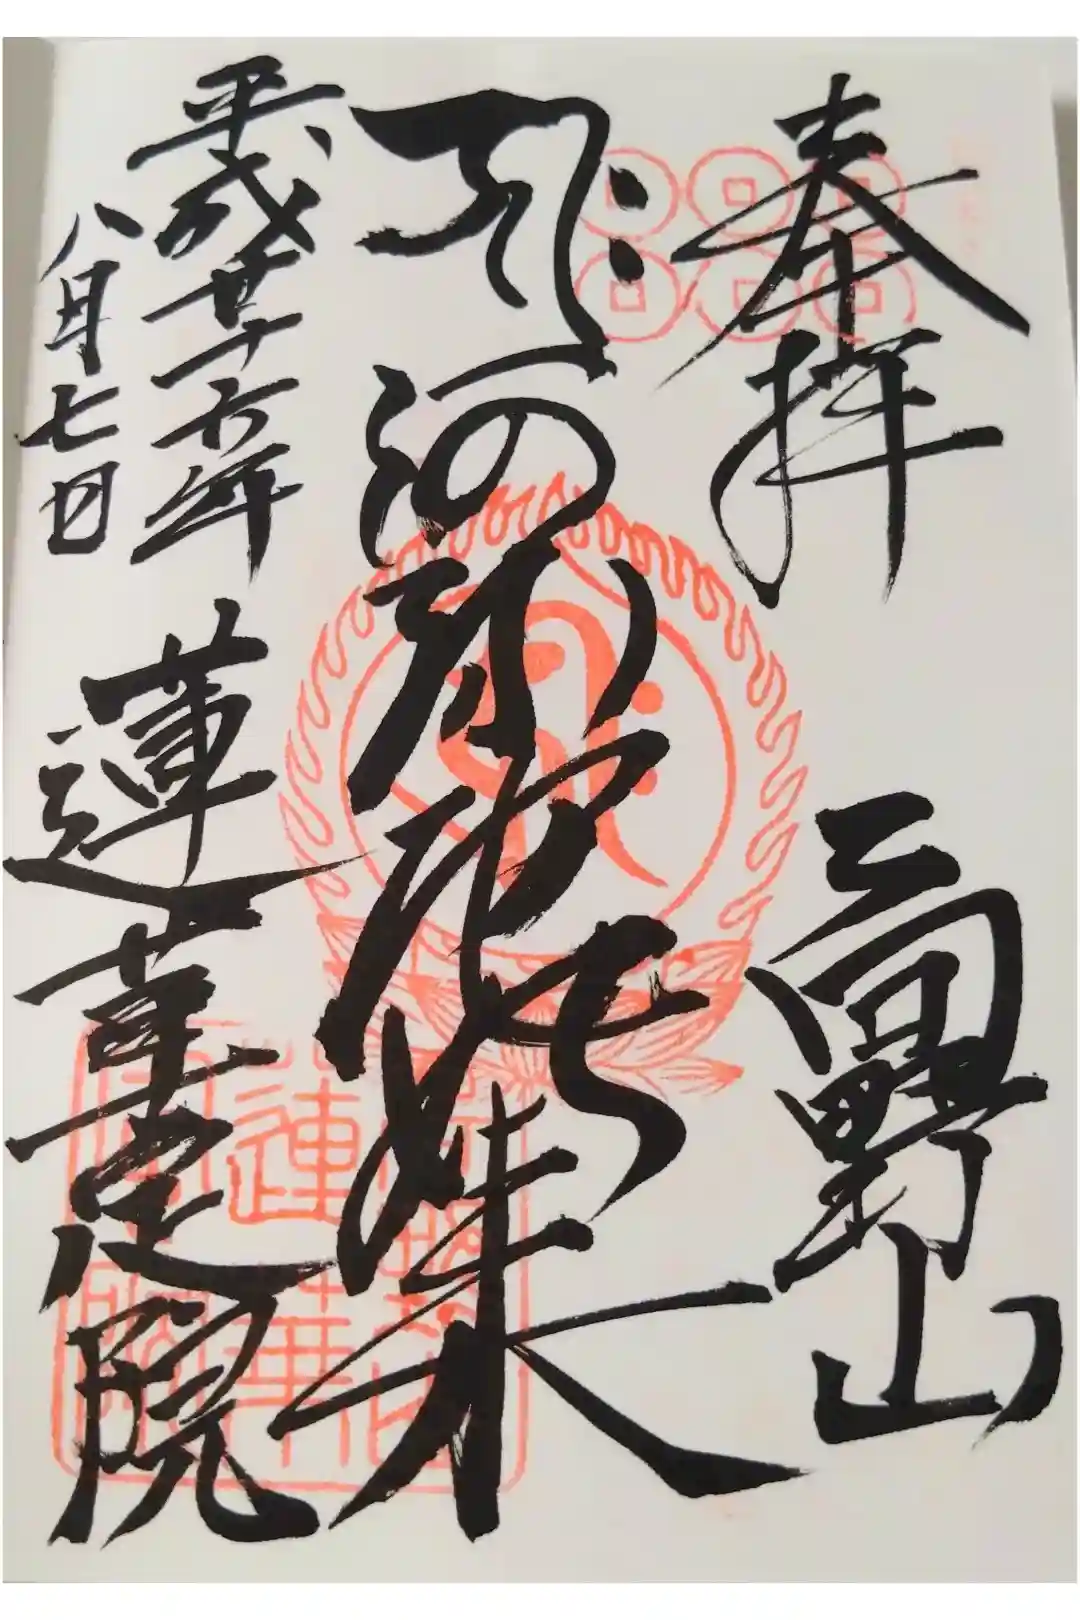 奉拝
高野山
𑖮𑖿𑖨𑖱𑖾
阿弥陀如来
平成廿六年
八月七日
蓮華定院
高野山
蓮華
定院